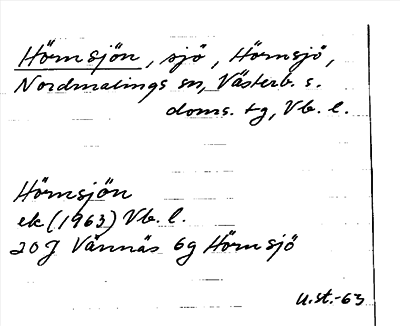 Hörnsjön, sjö, Hörnsjö,
Nordmalings sn, Västerb. s.
doms. tg, Vb. l.
Hörnsjön
ek (1963) Vb. l.
20J Vännäs 6g Hörnsjö
U.st.-63